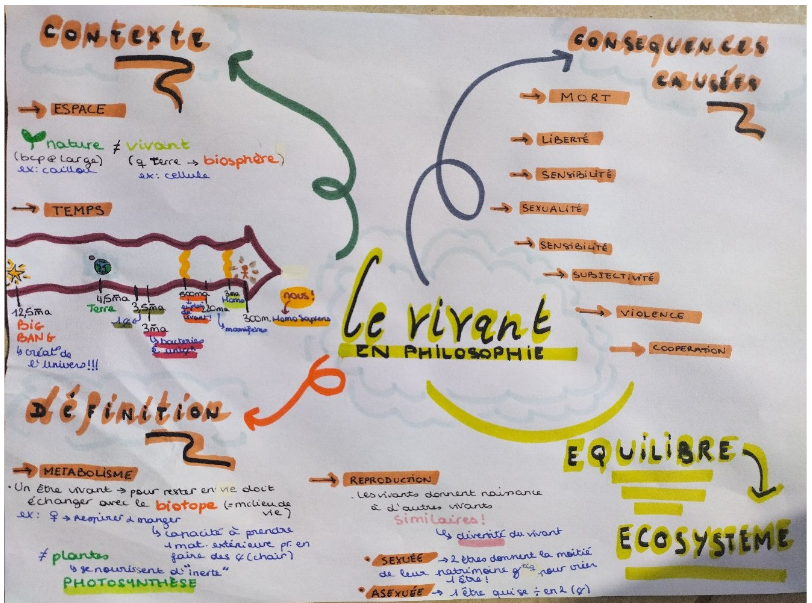 CONTEXTE
→ ESPACE
nature ≠ vivant
(bcp + large) (q Terre → biosphère)
ex: caillou ex: cellule
→ TEMPS
12,5ma
BIG
BANG
↳ créat° de
l'univers!!!
4,5ma
Terre
3,5ma
3ma
↳ bactéries
800ma
3ma
Homo
↳ mammifères
300m. Homo Sapiens
nous!
DÉFINITION
→ METABOLISME
• Un être vivant → pour rester en vie doit
échanger avec le biotope (= milieu de
vie)
ex: → respirer & manger
↳ capacité à prendre
mat. extérieure pr. en
faire des (chair)
≠ plantes
↳ se nourrissent d'"inerte"
PHOTOSYNTHÈSE
Le vivant
EN PHILOSOPHIE
→ REPRODUCTION
• Les vivants donnent naissance
à d'autres vivants
Similaires!
↳ diversité du vivant
• SEXUÉE → 2 êtres donnent la moitié
de leur patrimoine gque pour créer
1 être!
• ASEXUÉE → 1 être qui se ÷ en 2
CONSEQUENCES
CAUSÉES
→ MORT
→ LIBERTÉ
→ SENSIBILITÉ
→ SEXUALITÉ
→ SENSIBILITÉ
→ SUBJECTIVITÉ
→ VIOLENCE
→ COOPERATION
EQUILIBRE
ECOSYSTÈME